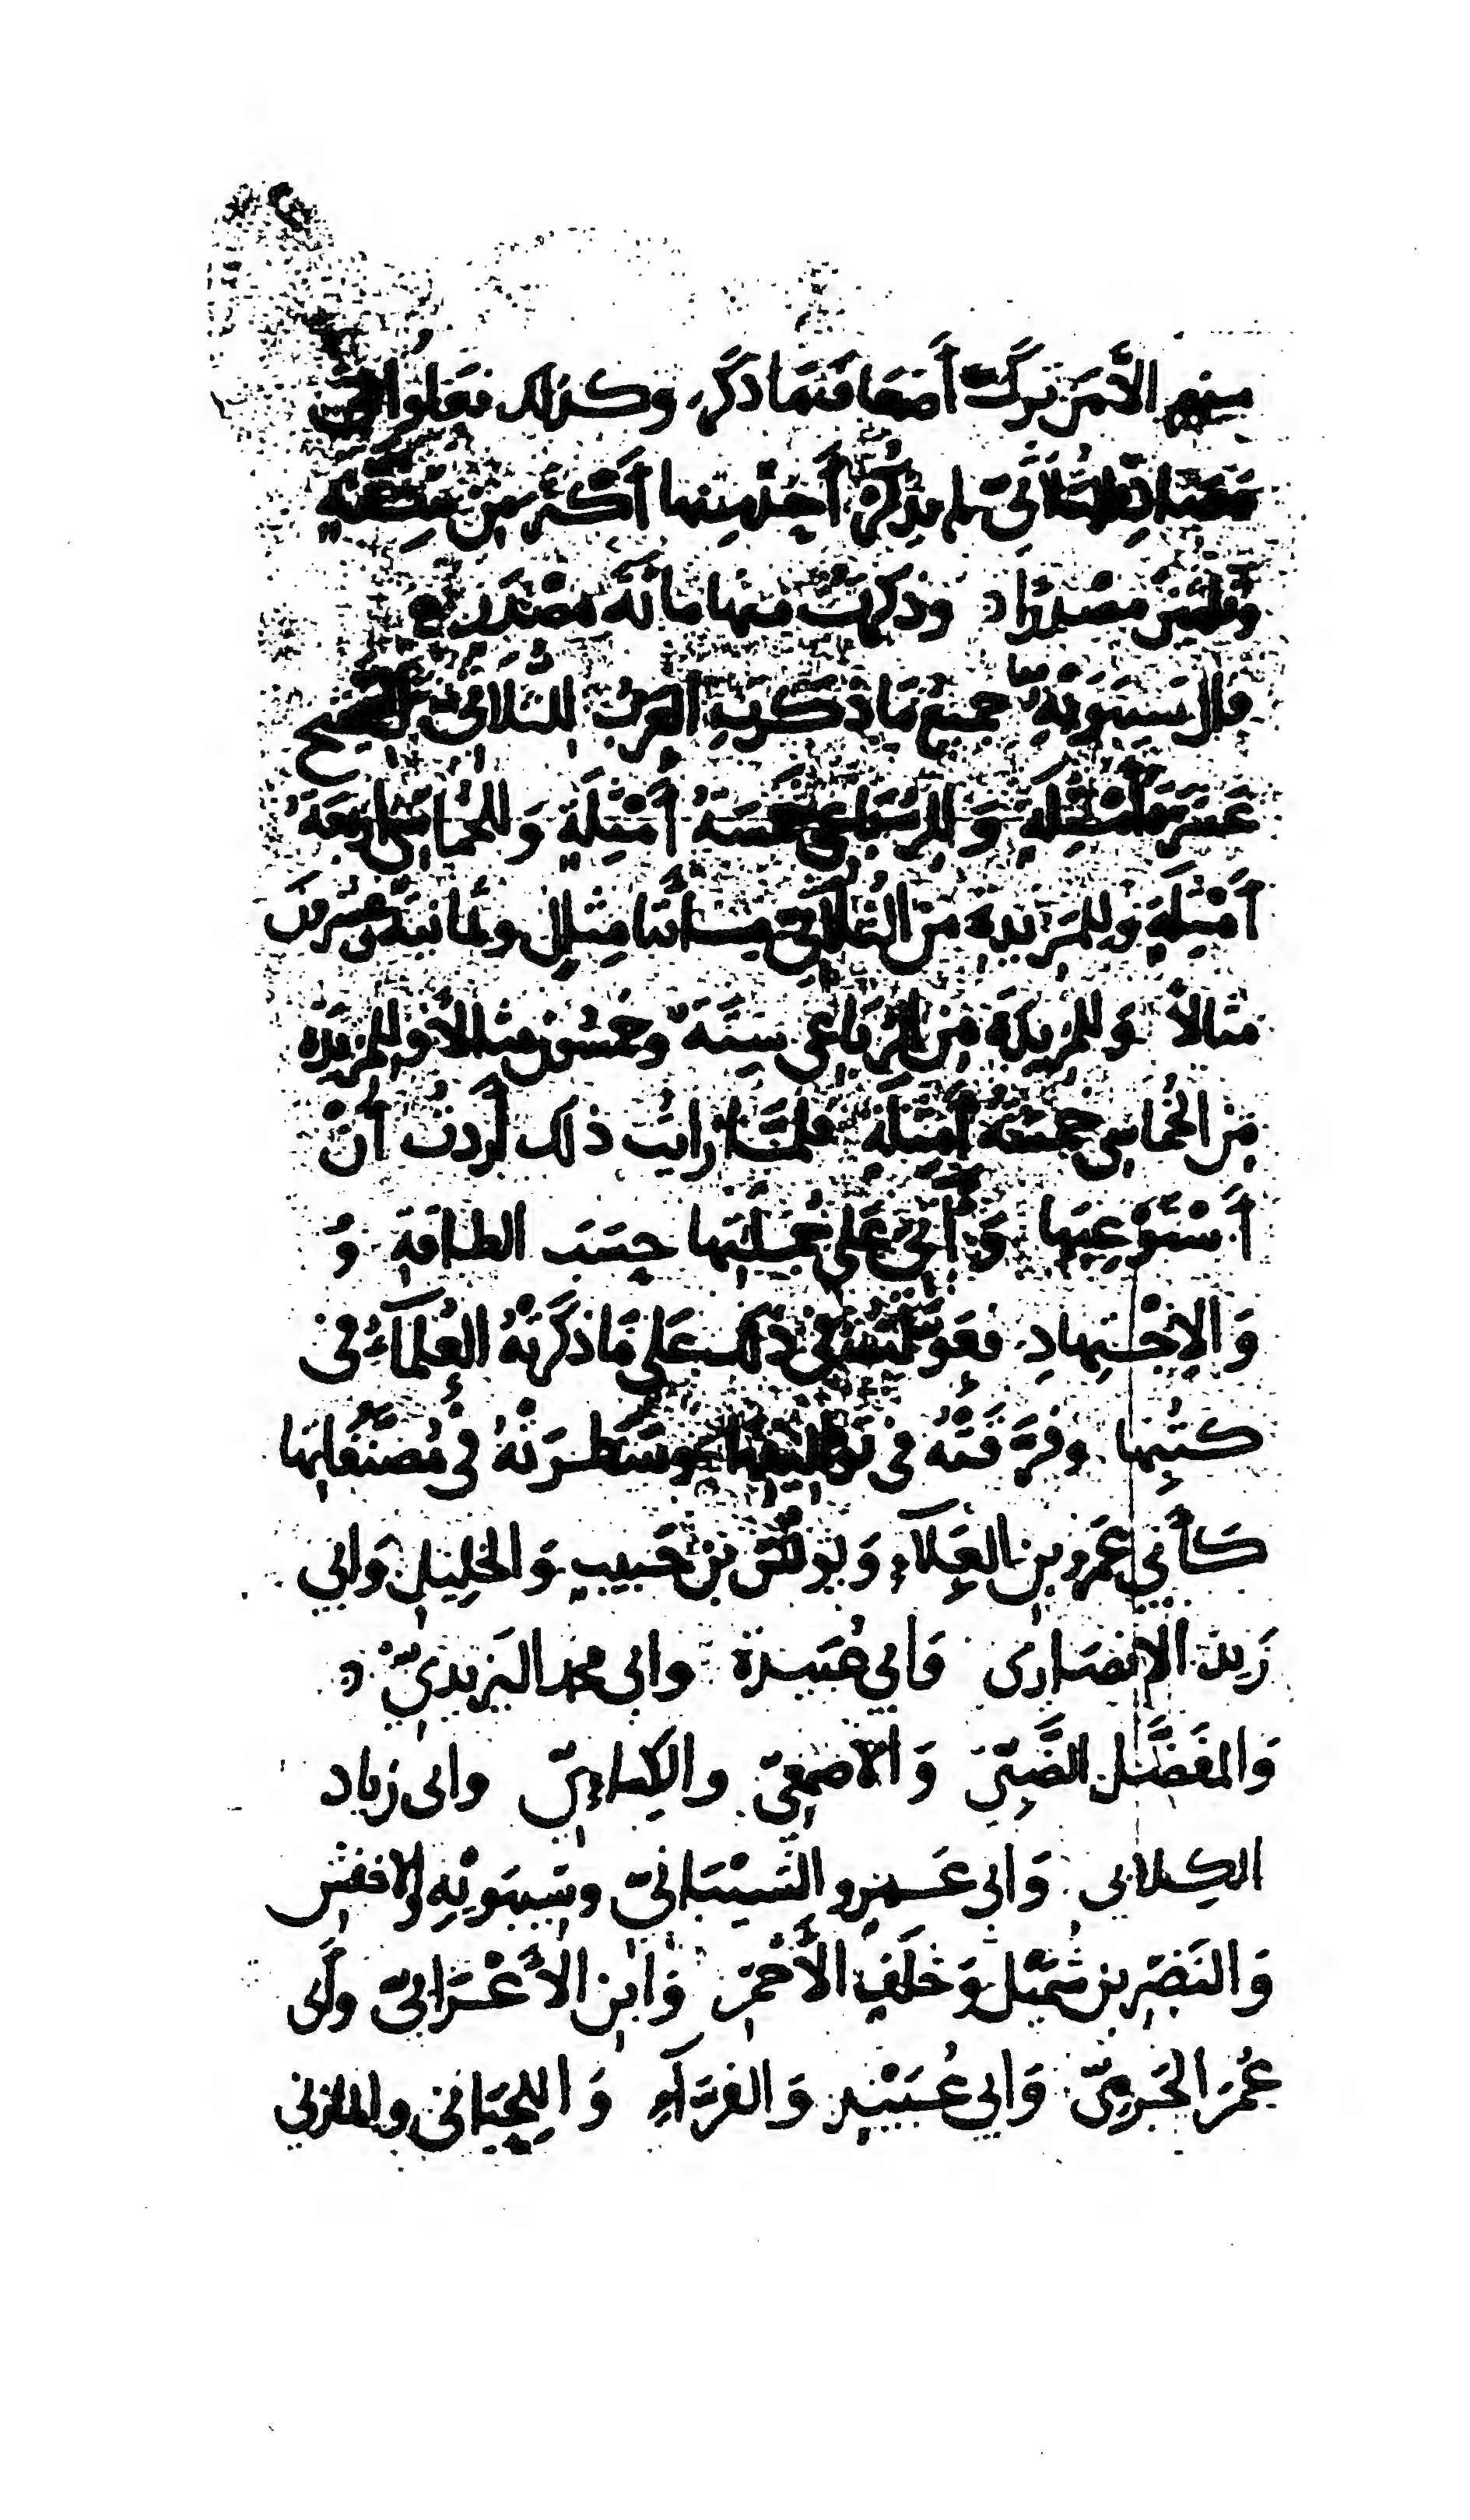 منهم الأمر ترك أضعاف ما ذكر وكذلك فعلوا في
مصادر الثلاثي لم يذكر أحد منهما أكثر من ستة
وثلثين مصدرا وذكرت منها مائة مصدر
قال سيبويه جميع ما ذكرت العرب للثلاثي الصحيح
عشرة أمثلة وللرباعي خمسة أمثلة وللخماسي أربعة
أمثلة وللمزيدة من الثلاثي مائتا مثل وثمانية وعشرون
مثالاً وللمزيدة من الرباعي ستة وخمسون مثالا وللمزيدة
من الخماسي خمسة أمثلة فلما رايت ذلك أردت أن
أستوعبها وَآتي على جملتها حسب الطاقة وَ
وَالاجْتهادِ فعولت في ذلك على مَا ذكَرَتْهُ العُلماءُ في
كتُبها وفرَّقَتْهُ في تواليفها وسَطرَتْهُ في مُصَنفاتِها
كأبي عَمرو بن العَلاءِ وَيونس بن حَبيبٍ وَالخليل وَابي
زَيد الانصارى وَأبي عُبَيدة وابى محمد اليزيديّ
وَالمفَضَّل الضَّبّيّ وَالاصمعيّ والكساءيّ وابى زياد
الكلابى وَابى عَمرو الشَيْبَانيّ وسِيبَويْهِ والاخفش
وَالنَضْر بن شُمَيْل وَخلَفٍ الأَحْمَرِ وَابن الأَعْرَابيّ وأبى
عُمَرَ الجَرميّ وَابى عُبَيْدٍ وَالفرَّآءِ وَاللِحيَانى والمازنى